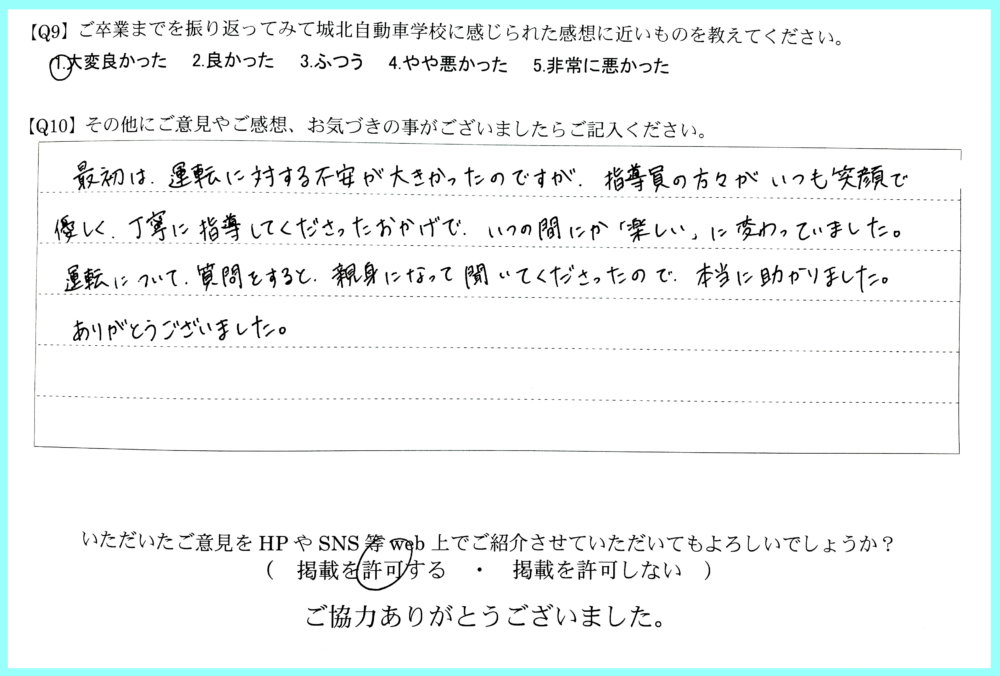 【Q9】ご卒業までを振り返ってみて城北自動車学校に感じられた感想に近いものを教えてください。
1.大変良かった 2.良かった 3.ふつう 4.やや悪かった 5.非常に悪かった
【Q10】その他にご意見やご感想、お気づきの事がございましたらご記入ください。
最初は、運転に対する不安が大きかったのですが、指導員の方々がいつも笑顔で
優しく、丁寧に指導してくださったおかげで、いつの間にか「楽しい」に変わっていました。
運転について、質問をすると、親身になって聞いてくださったので、本当に助かりました。
ありがとうございました。
いただいたご意見をHPやSNS等web上でご紹介させていただいてもよろしいでしょうか？
（ 掲載を許可する ・ 掲載を許可しない ）
ご協力ありがとうございました。